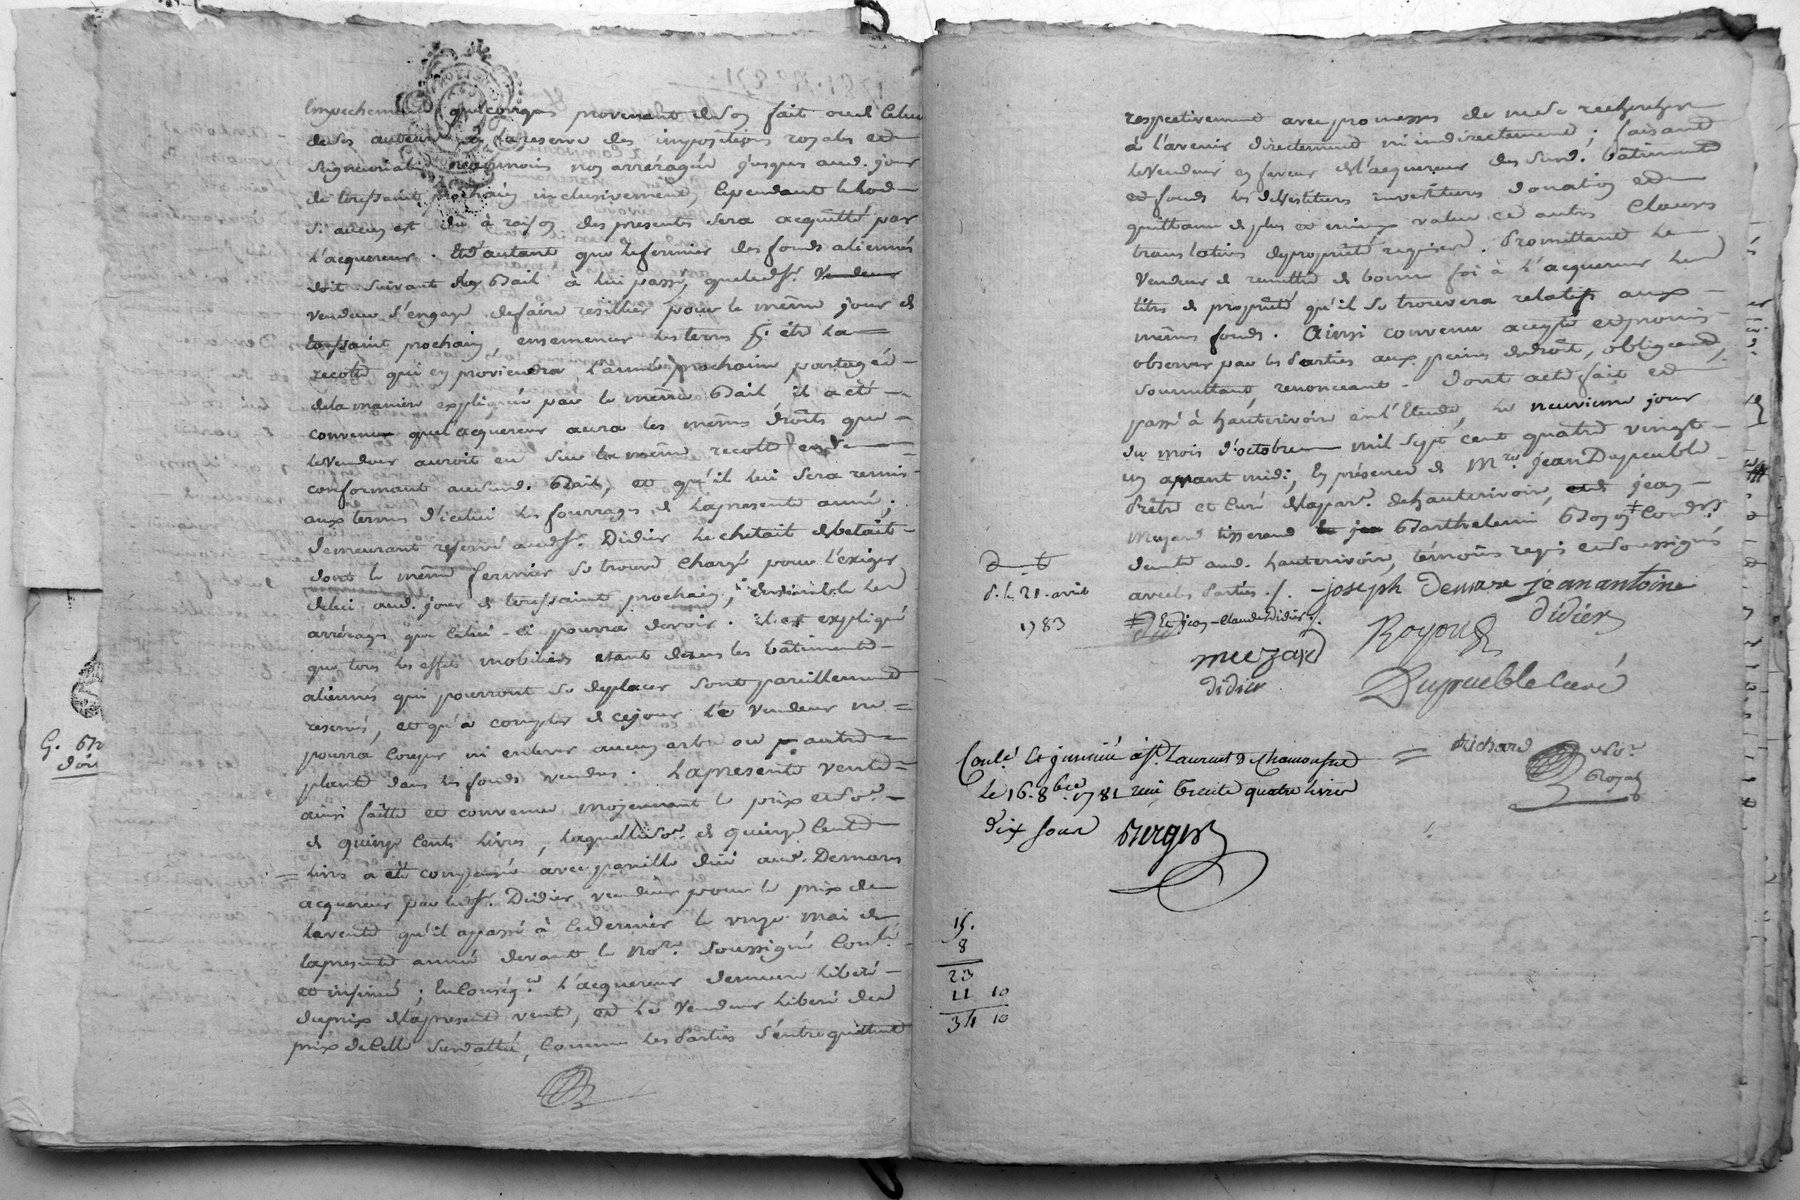 Empechements quelconques provenant de son fait ou de celui
de ses auteurs à la reserve des impositions royales et
Seigneuriales néanmoins non arréragés jusques aud. jour
de toussaint prochain inclusivement, Cependant le lod
si aucun est dû à raison des presentes sera acquitté par
l'acquereur. Et d'autant que le fermier des fonds aliennés
doit suivant son Bail à lui passé, que led. Sr. Vendeur
vendeur s'engage de faire resillier pour le même jour de
toussaint prochain, ensemencer les terres pr. être la
recolte qui en proviendra l'année prochaine partagée
de la maniere expliquée par le même Bail il a été
convenu que l'acquereur aura les mêmes droits que
le Vendeur auroit eu sur la même recolte en se
conformant aud. Bail, et qu'il lui sera remis
aux termes d'icelui les fourrages de la presente année;
demeurant reservé aud. Sr. Didier le chetail de betail
dont le même fermier se trouve chargé pour l'exiger
de lui aud. jour de toussaint prochain, ensemble les
arrérages que celui-ci pourra devoir. il est expliqué
que tous les effets mobiliers etant dans les bâtiments
aliennés qui pourront se deplacer sont pareillement
reservés, et qu'à compter de ce jour le Vendeur ne
pourra couper ni enlever aucun arbre ou autre
plante dans les fonds vendus. La presente vente
ainsi faitte et convenue moyennant le prix et so.e
de quinze cents livres, laquelle so.e de quinze cents
livres a été compensée avec pareille düe aud. Demare
acquereur par led. Sr. Didier vendeur pour le prix de
la vente qu'il a passé à ce dernier le onze mai de
la presente année devant le No.re soussigné Conlé
et insinué; En conséq.ce l'acquereur demeure liberé
du prix de la presente vente, et le Vendeur liberé du
prix de celle surdattée, comme les Parties s'entrequittent
respectivement avec promesses de ne se rechercher
à l'avenir directement ni indirectement; faisant
le Vendeur en faveur de l'acquereur des susd. bâtiments
et fonds les devestitures investitures donation et
quittance de plus et mieux value et autres Clauses
translatives de propriété requises. Promettant le
Vendeur de remettre de bonne foi à l'acquereur les
titres de propriété qu'il se trouvera relatifs aux
mêmes fonds. Ainsi convenu accepté et promis
observer par les Parties aux peines de droit, obligeant,
soumettant, renonceant. Dont acte fait et
passé à hauterivoire en l'Etude, le neuvieme jour
du mois d'octobre mil sept cent quatre vingt
un avant midi; En présence de Mre. jean Dupeuble
Prêtre et Curé de la par.e de hauterivoire, jean
Barthelemi Boyon
aud. hauterivoire, témoins requis et soussignés
avec les Parties ./. joseph Demare jean antoine
didier
‡ Et jean-Claude Didier ./.
d. t
d. le 21. avril
1783
didier
Dupueble Curé
Conlé et jnsinüé à St. Laurent de Chamousset
le 16. 8bre 1781 Reçu trente quatre livres
dix sous Berger
Richard No.re
Royal
15.
8
23
11 10
34 10
G.